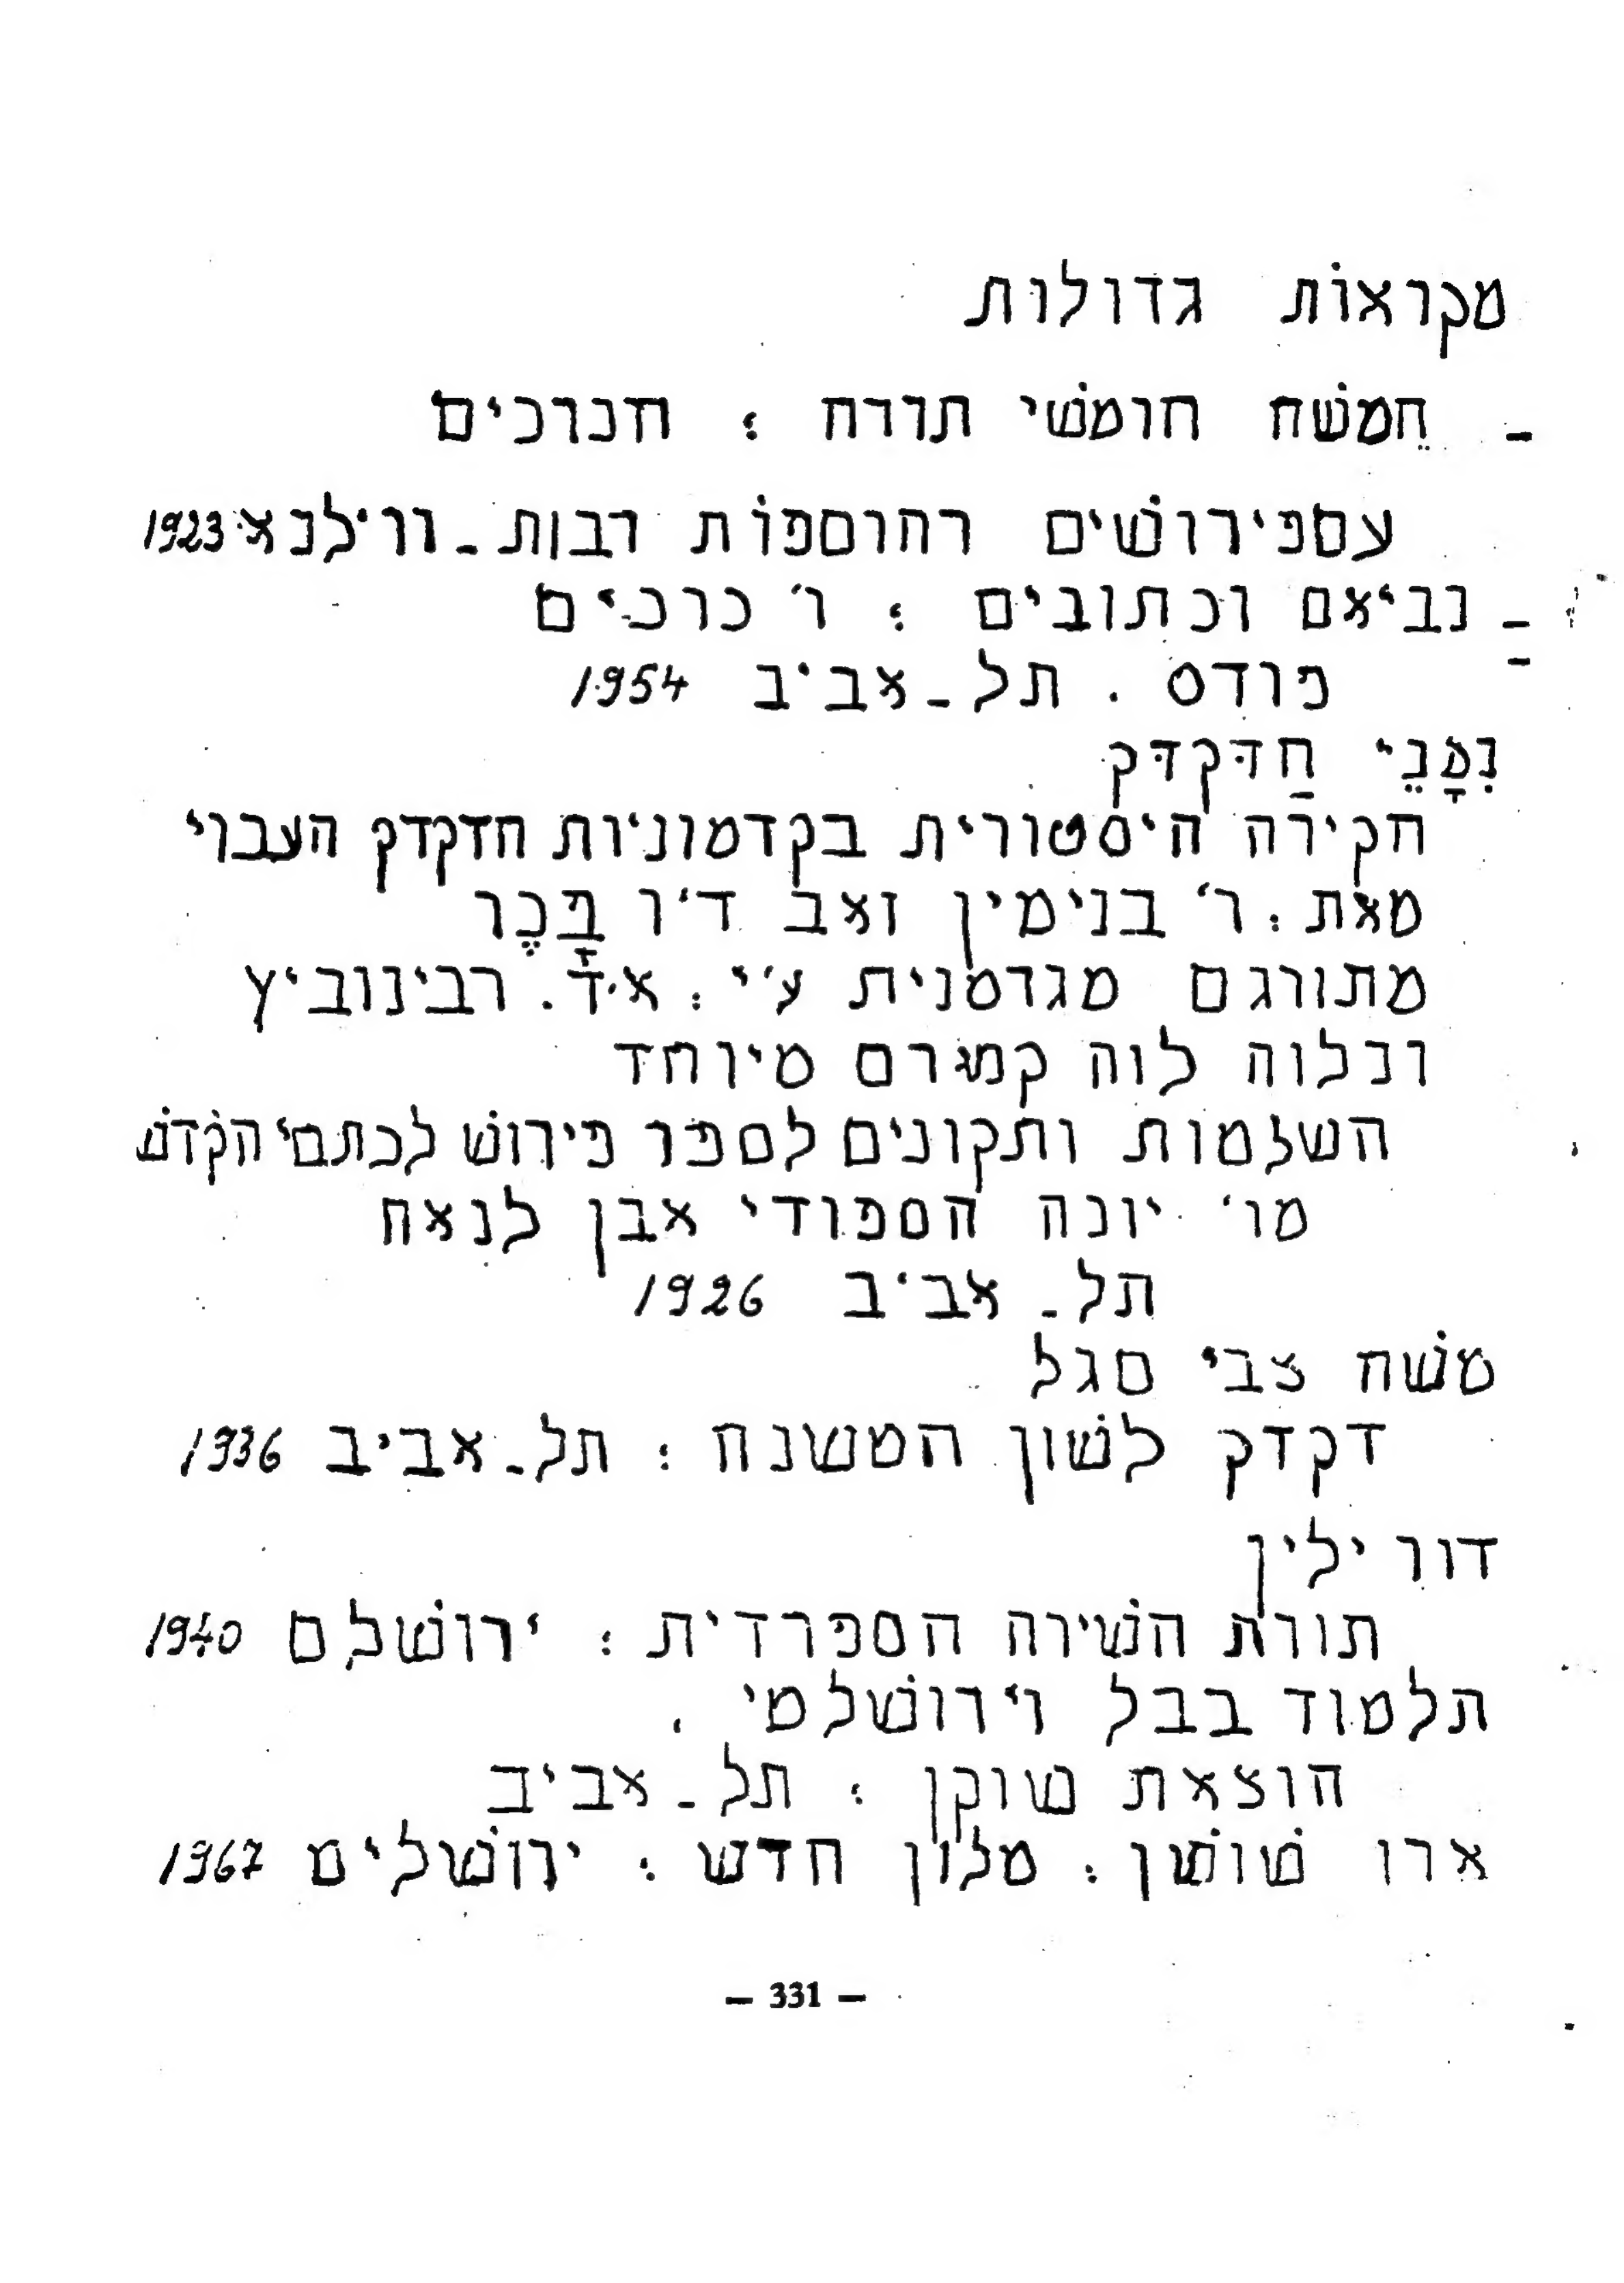 מקראות גדולות
- חמשח חומשי תורח : חנרכים
עספירושים רהוספות רבות - ווילנא 1923
- נביאם וכתובים : ו' כרכים
פודס . תל-אביב 1954
נִמָנֵי חַדּקדּק
חקירה היסטורית בקדמוניות חדקדק העבוי
מאת : ר' בנימין זאב ד'ו בָּכֶר
מתורגם מגדמנית ע'י : א.ד. רבינוביץ
ונלוה לוה קמגרם מיוחד
השלמות ותקונים לספר פירוש לכתםי הקדש
מו' יונה הספודי אבן לנאח
תל-אביב 1926
משח צבי סגל
דקדק לשון המשנח : תל-אביב 1936
דור ילין
תורת השירה הספרדית : ירושלם 1940
תלמוד בבל וירושלמי .
הוצאת שוקן : תל-אביב
ארו שושן : מלון חדש : ירושלים 1967
- 331 -